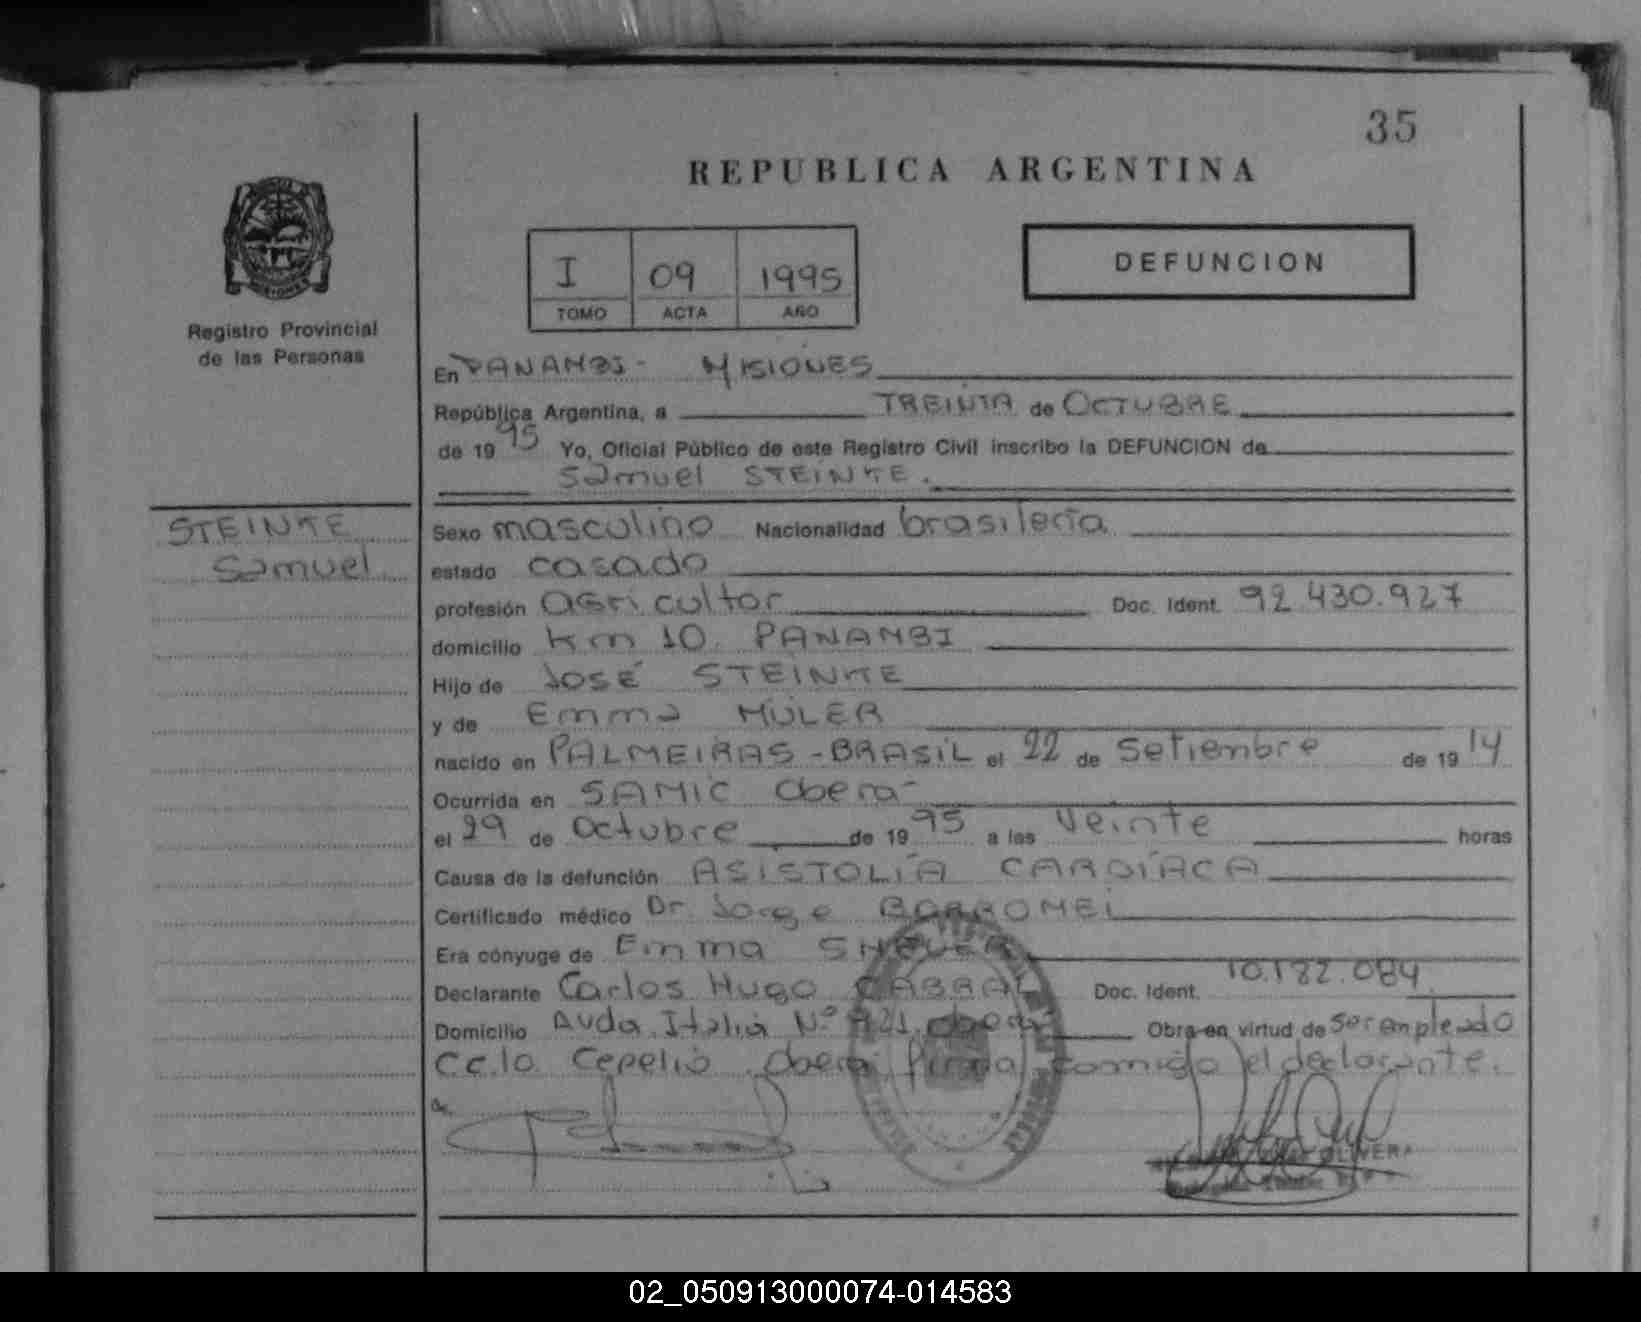 35
REPUBLICA ARGENTINA
MISIONES
Registro Provincial
de las Personas
I 09 1995
TOMO ACTA AÑO
DEFUNCION
En PANAMBI - MISIONES
República Argentina, a TREINTA de OCTUBRE
de 19 95 Yo, Oficial Público de este Registro Civil inscribo la DEFUNCION de
Samuel STEINKE.
STEINKE
Samuel
Sexo masculino Nacionalidad brasileña
estado casado
profesión agricultor Doc. Ident. 92.430.927
domicilio Km 10. PANAMBI
Hijo de José STEINKE
y de Emma MÜLER
nacido en PALMEIRAS - BRASIL el 22 de Setiembre de 19 14
Ocurrida en SAMIC Oberá
el 29 de Octubre de 19 95 a las Veinte horas
Causa de la defunción ASISTOLÍA CARDÍACA
Certificado médico Dr. Jorge BORROMEI
Era cónyuge de Emma
Declarante Carlos Hugo CABRAL Doc. Ident. 10.122.084
Domicilio Avda. Italia Nº 421. Oberá Obra en virtud de ser empleado
Cepelio Oberá firma comigo el declarante.
OLIVERA
02_050913000074-014583